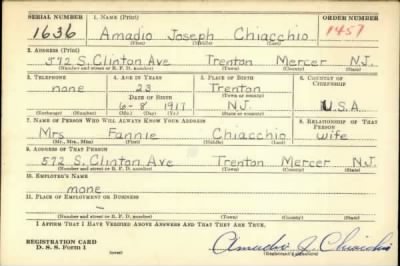 SERIAL NUMBER 1. NAME (Print) ORDER NUMBER
1636 Amadio Joseph Chiacchio 1457
(First) (Middle) (Last)
2. ADDRESS (Print)
572 S. Clinton Ave Trenton Mercer N.J.
(Number and street or R. F. D. number) (Town) (County) (State)
3. TELEPHONE 4. AGE IN YEARS 5. PLACE OF BIRTH 6. COUNTRY OF CITIZENSHIP
none 23 Trenton
DATE OF BIRTH (Town or county)
6-8 1917 N.J. U.S.A.
(Exchange) (Number) (Mo.) (Day) (Yr.) (State or country)
7. NAME OF PERSON WHO WILL ALWAYS KNOW YOUR ADDRESS 8. RELATIONSHIP OF THAT PERSON
Mrs Fannie Chiacchio wife
(Mr., Mrs., Miss) (First) (Middle) (Last)
9. ADDRESS OF THAT PERSON
572 S. Clinton Ave Trenton Mercer N.J.
(Number and street or R. F. D. number) (Town) (County) (State)
10. EMPLOYER'S NAME
none
11. PLACE OF EMPLOYMENT OR BUSINESS
–
(Number and street or R. F. D. number) (Town) (County) (State)
I AFFIRM THAT I HAVE VERIFIED ABOVE ANSWERS AND THAT THEY ARE TRUE.
REGISTRATION CARD
D. S. S. Form 1 (over) Amadio J. Chiacchio
(Registrant's signature)